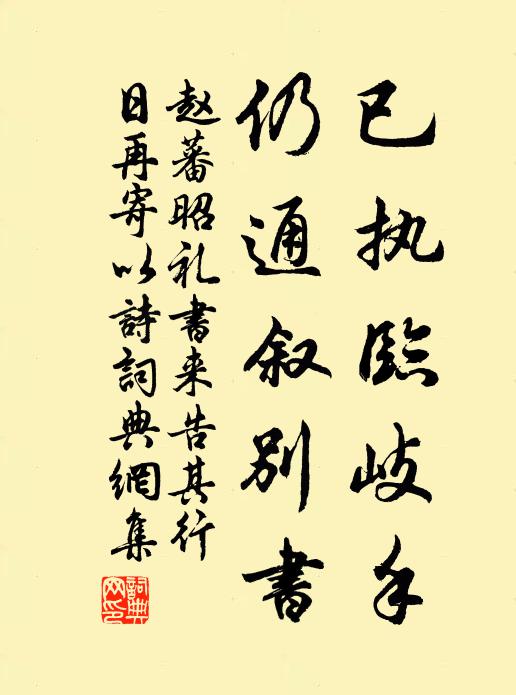 已执臨歧手
仍通叙别書
赵蕃昭礼書来告其行
日再寄以詩詞典網集
詞典网印